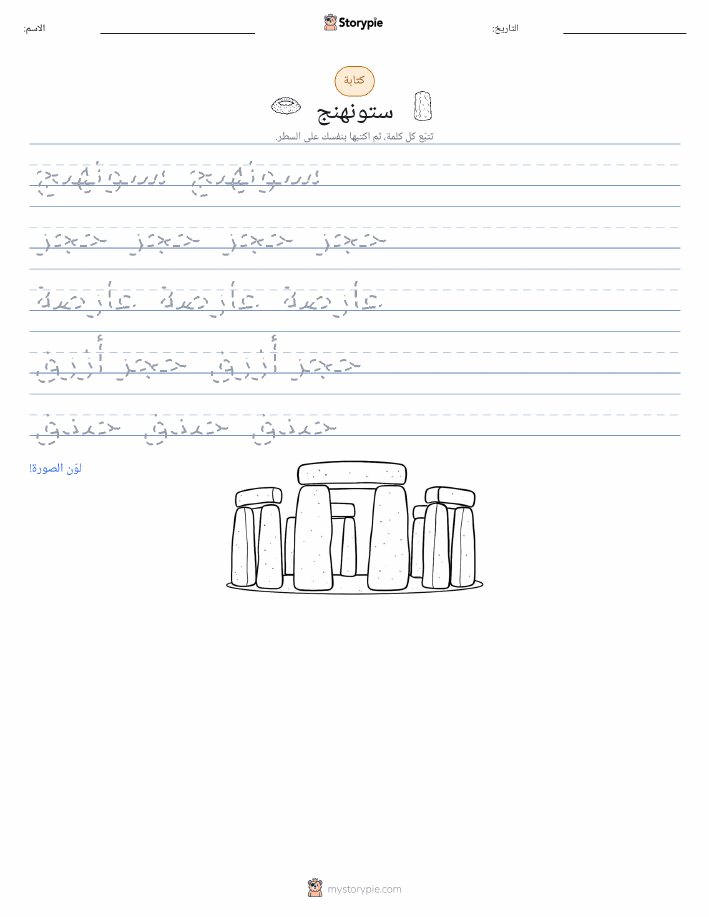 الاسم:
Storypie
التاريخ:
كتابة
ستونهنج
تتبّع كل كلمة، ثم اكتبها بنفسك على السطر.
ستونهنج ستونهنج
حجر حجر حجر حجر
عارضة عارضة عارضة
حجر أزرق حجر أزرق
خندق خندق خندق
لوّن الصورة!
mystorypie.com